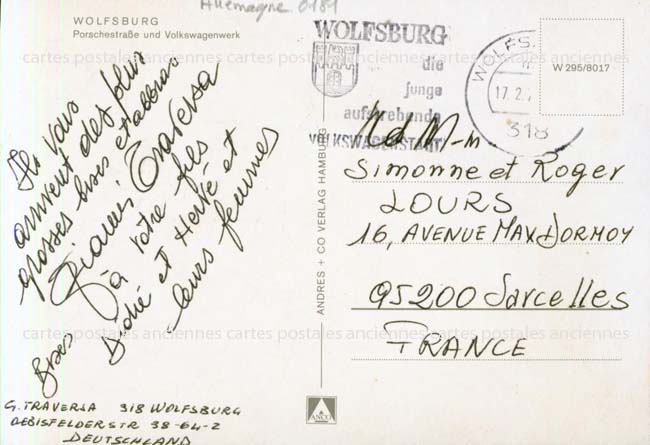 Allemagne 0181
WOLFSBURG
Porschestraße und Volkswagenwerk
Ils vous
arrivent des plus
grosses bises
Gianni Traversa
à votre fils
Didié et Hervé et
leurs femmes
Bises
G. TRAVERSA 318 WOLFSBURG
OEBISFELDERSTR 38-64-2
DEUTSCHLAND
ANDRES + CO VERLAG HAMBURG
ANCO
WOLFSBURG
die
junge
aufstrebende
VOLKSWAGENSTADT
WOLFS
17.2.
318
W 295/8017
Simonne et Roger
LOURS
16, AVENUE MAX DORMOY
95200 Sarcelles
FRANCE
cartes postales anciennes cartes postales anciennes cartes postales anciennes
cartes postales anciennes cartes postales anciennes cartes postales anciennes